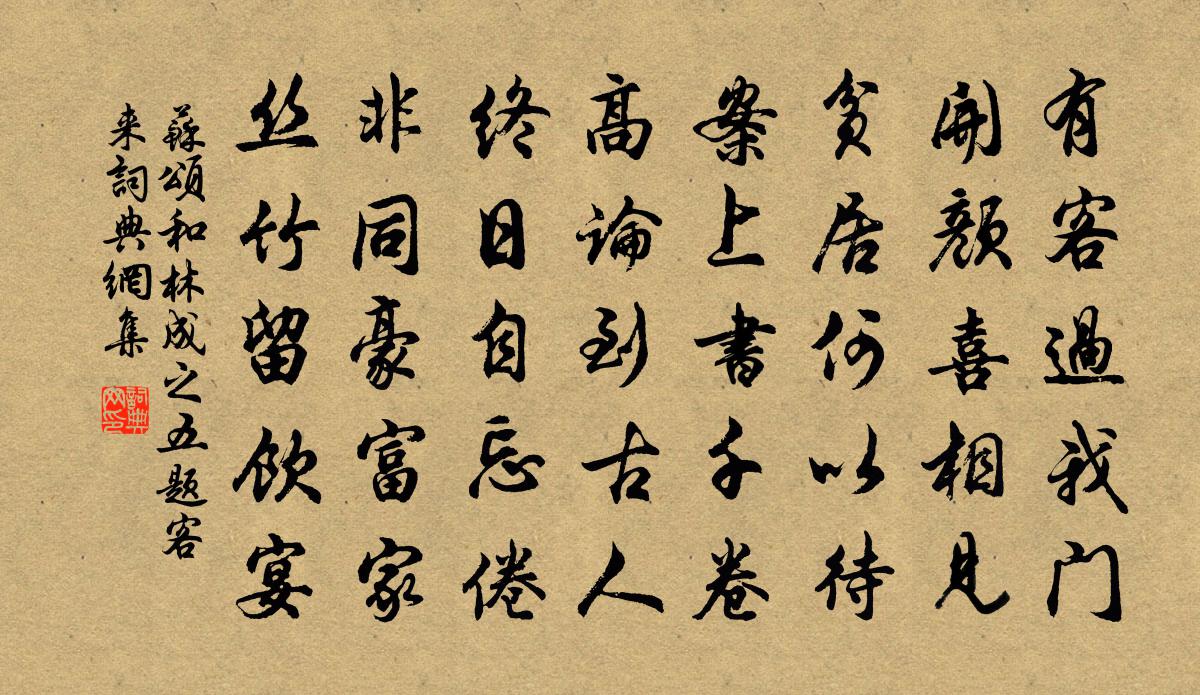 有客過我門
開顏喜相見
貧居何以待
案上書千卷
高論到古人
終日自忘倦
非同豪富家
丝竹留飲宴
蘇頌和林成之五题客
来詞典網集
詞典
网印